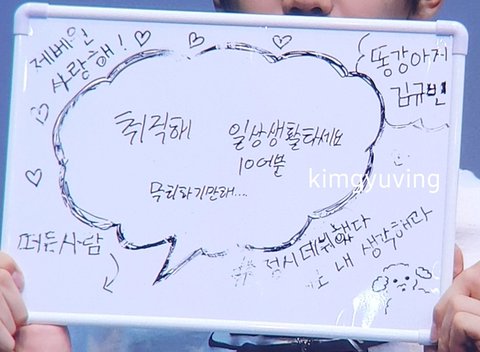 제베원
사랑해!
똥강아지
김규빈
취직해
일상생활다세요
10여분
묵티하기만해....
kimgyuving
떠든사람
# 정시데뷔했다
내 생각해라